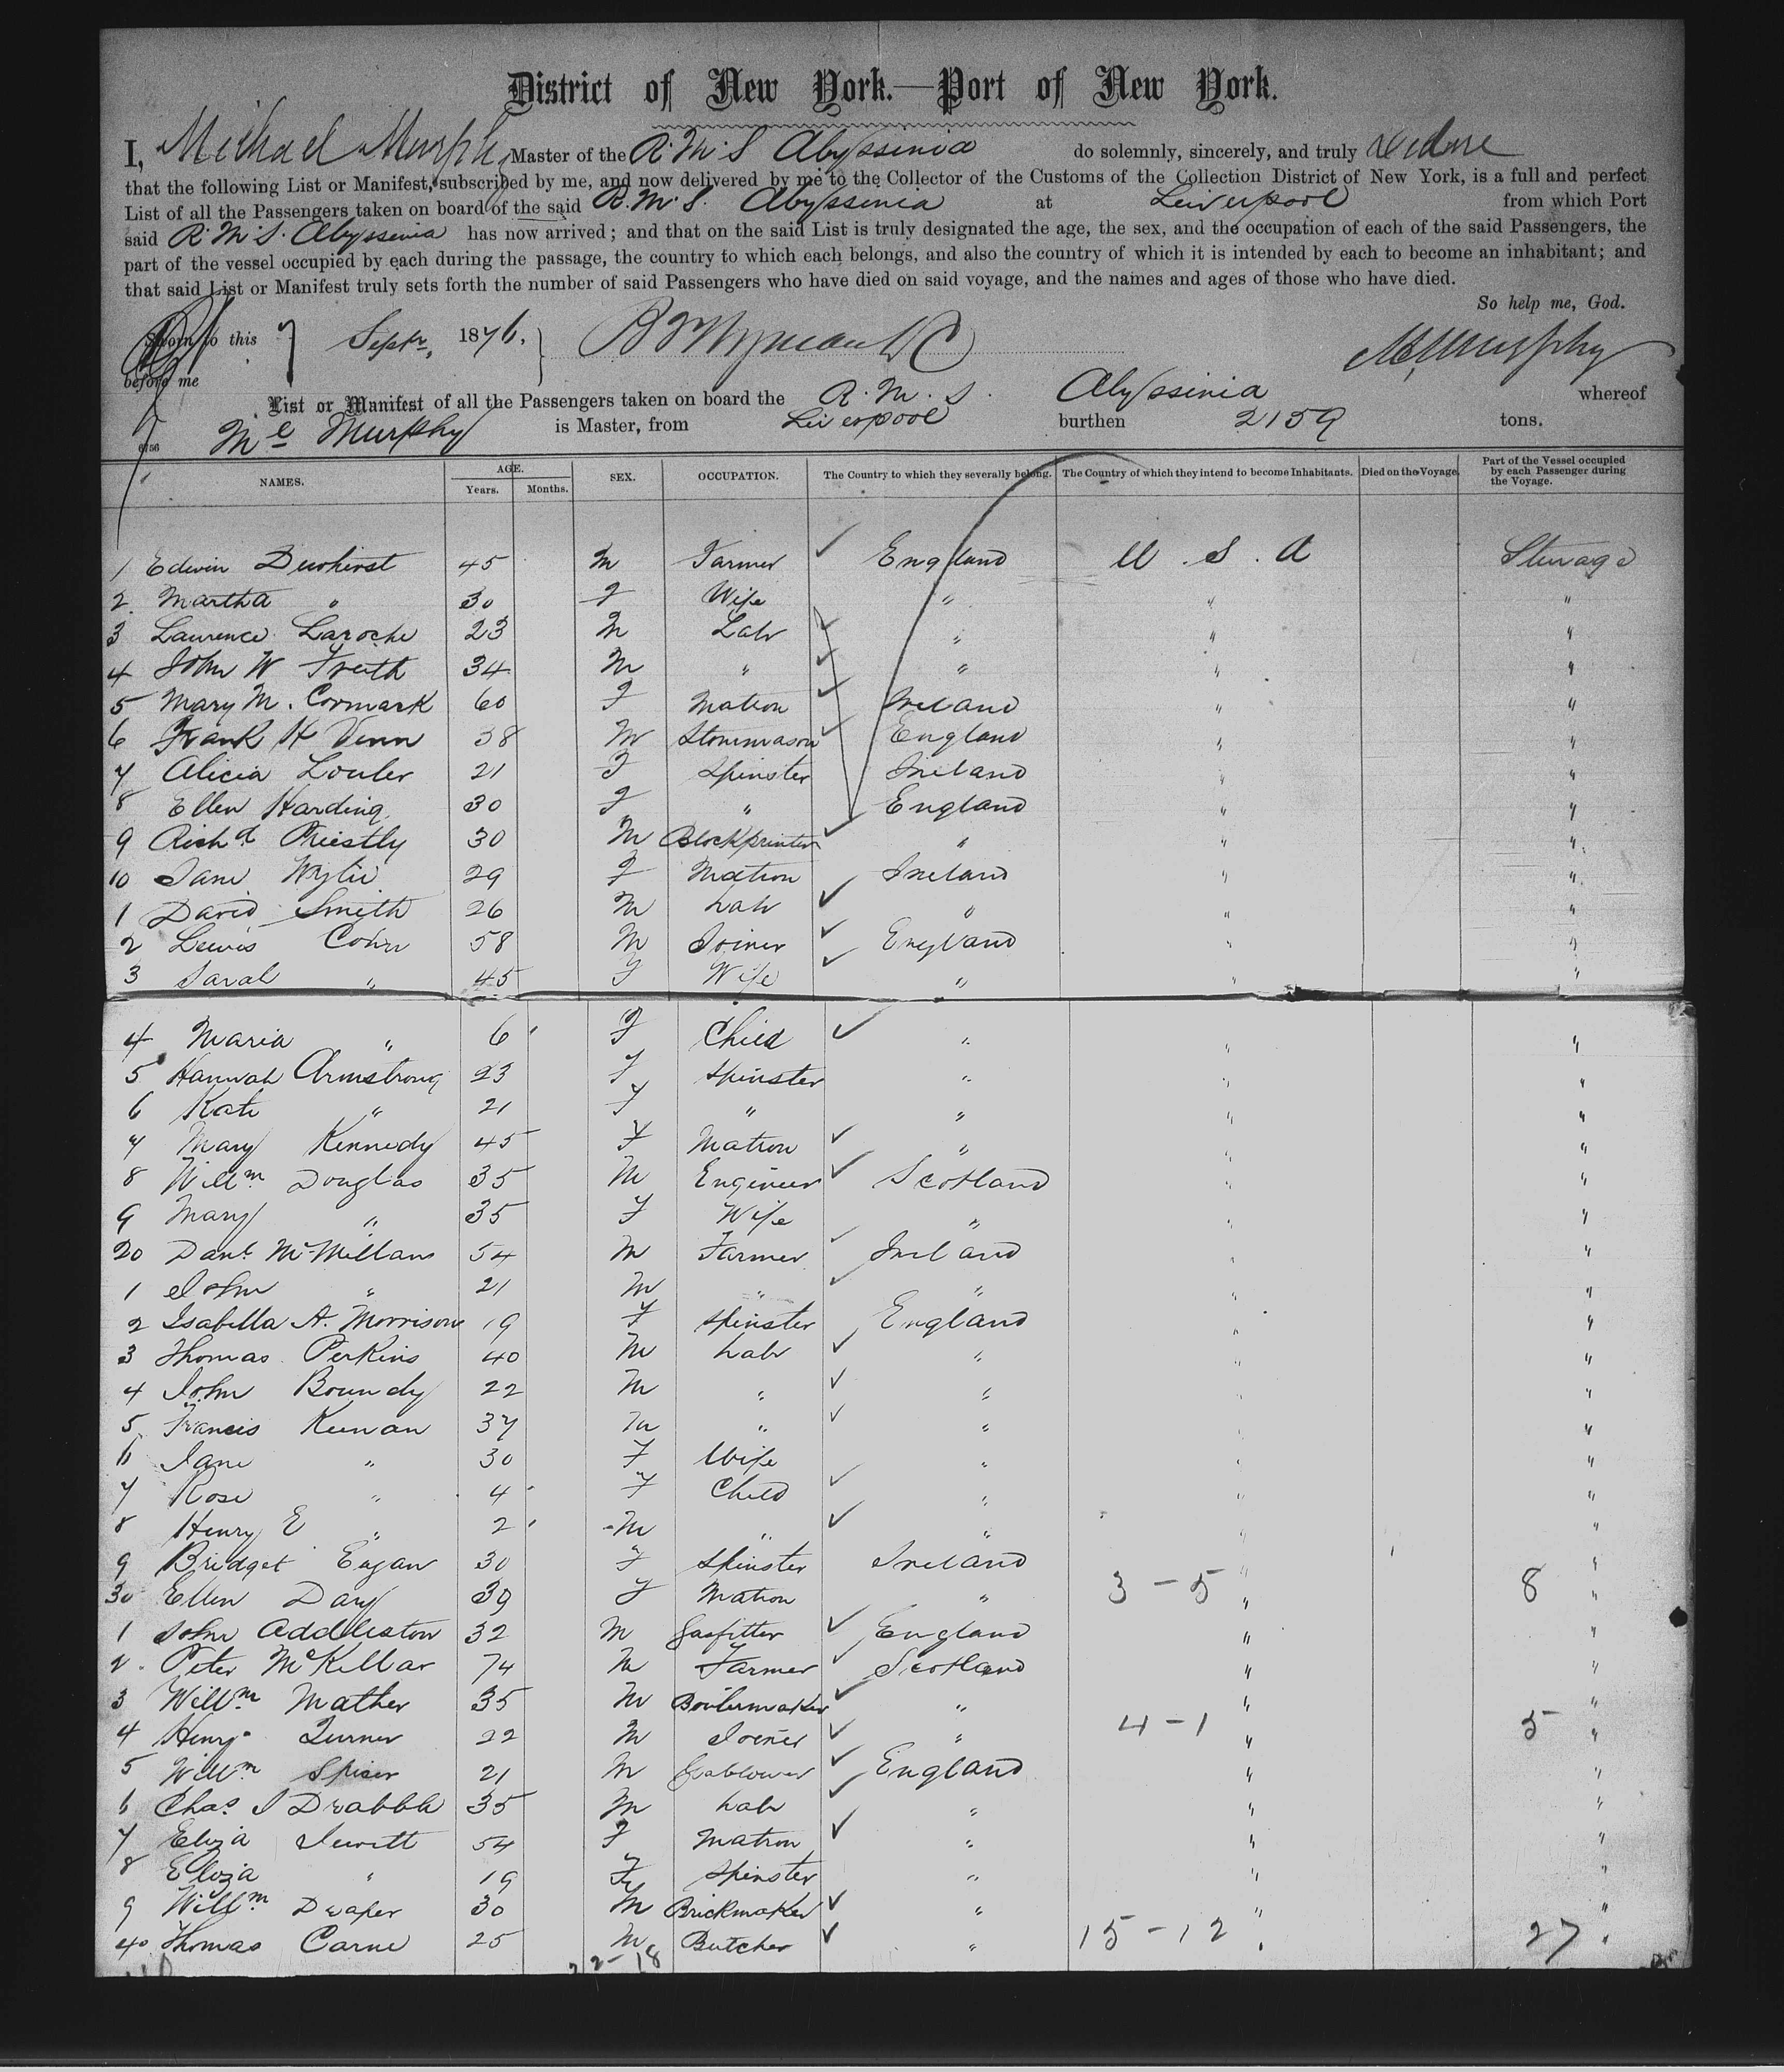 District of New York.—Port of New York.
I, Michael Murphy Master of the R.M.S Abyssinia do solemnly, sincerely, and truly declare
that the following List or Manifest, subscribed by me, and now delivered by me to the Collector of the Customs of the Collection District of New York, is a full and perfect
List of all the Passengers taken on board of the said R.M.S. Abyssinia at Liverpool from which Port
said R.M.S. Abyssinia has now arrived; and that on the said List is truly designated the age, the sex, and the occupation of each of the said Passengers, the
part of the vessel occupied by each during the passage, the country to which each belongs, and also the country of which it is intended by each to become an inhabitant; and
that said List or Manifest truly sets forth the number of said Passengers who have died on said voyage, and the names and ages of those who have died.
So help me, God.
Sworn to this 7 Septr, 1876. Murphy
before me
List or Manifest of all the Passengers taken on board the R.M.S. Abyssinia whereof
Ml Murphy is Master, from Liverpool burthen 2159 tons.
NAMES. AGE. Years. Months. SEX. OCCUPATION. The Country to which they severally belong. The Country of which they intend to become Inhabitants. Died on the Voyage. Part of the Vessel occupied by each Passenger during the Voyage.
1 Edwin Dewhirst 45 M Farmer England U.S.A Steerage
2 Martha " 30 F Wife " " "
3 Laurence Laroche 23 M Labr " " "
4 John W Freith 34 M " " " "
5 Mary M. Cormark 60 F Matron Ireland " "
6 Frank H Venn 38 M Stonemason England " "
7 Alicia Louler 21 F Spinster Ireland " "
8 Ellen Harding 30 F " England " "
9 Richd Priestly 30 M Blockprinter " " "
10 Jane Wylie 29 F Matron Ireland " "
1 David Smith 26 M Labr " " "
2 Lewis Cohn 58 M Joiner England " "
3 Sarah " 45 F Wife " " "
4 Maria " 6 F Child " " "
5 Hannah Armstrong 23 F Spinster " " "
6 Kate " 21 F " " " "
7 Mary Kennedy 45 F Matron " " "
8 Willm Douglas 35 M Engineer Scotland " "
9 Mary " 35 F Wife " " "
20 Danl McMillans 54 M Farmer Ireland " "
1 John " 21 M " " " "
2 Isabella A. Morrison 19 F Spinster England " "
3 Thomas Perkins 40 M Labr " " "
4 John Boundy 22 M " " " "
5 Francis Keenan 37 M " " " "
6 Jane " 30 F Wife " " "
7 Rose " 4 F Child " " "
8 Henry E " 2 M " " " "
9 Bridget Eagan 30 F Spinster Ireland " "
30 Ellen Day 39 F Matron " 3-5 " 8 "
1 John Addleston 32 M Gasfitter England " "
2 Peter McKellar 74 M Farmer Scotland " "
3 Willm Mather 35 M Boilermaker " " "
4 Henry Turner 22 M Joiner " 4-1 " 5 "
5 Willm Spicer 21 M England " "
6 Chas J Drabble 35 M Labr " " "
7 Eliza Jewitt 54 F Matron " " "
8 Eliza " 19 F Spinster " " "
9 Willm Draper 30 M Brickmaker " " "
40 Thomas Carne 25 M Butcher " 15-12 " 27 "
22-18